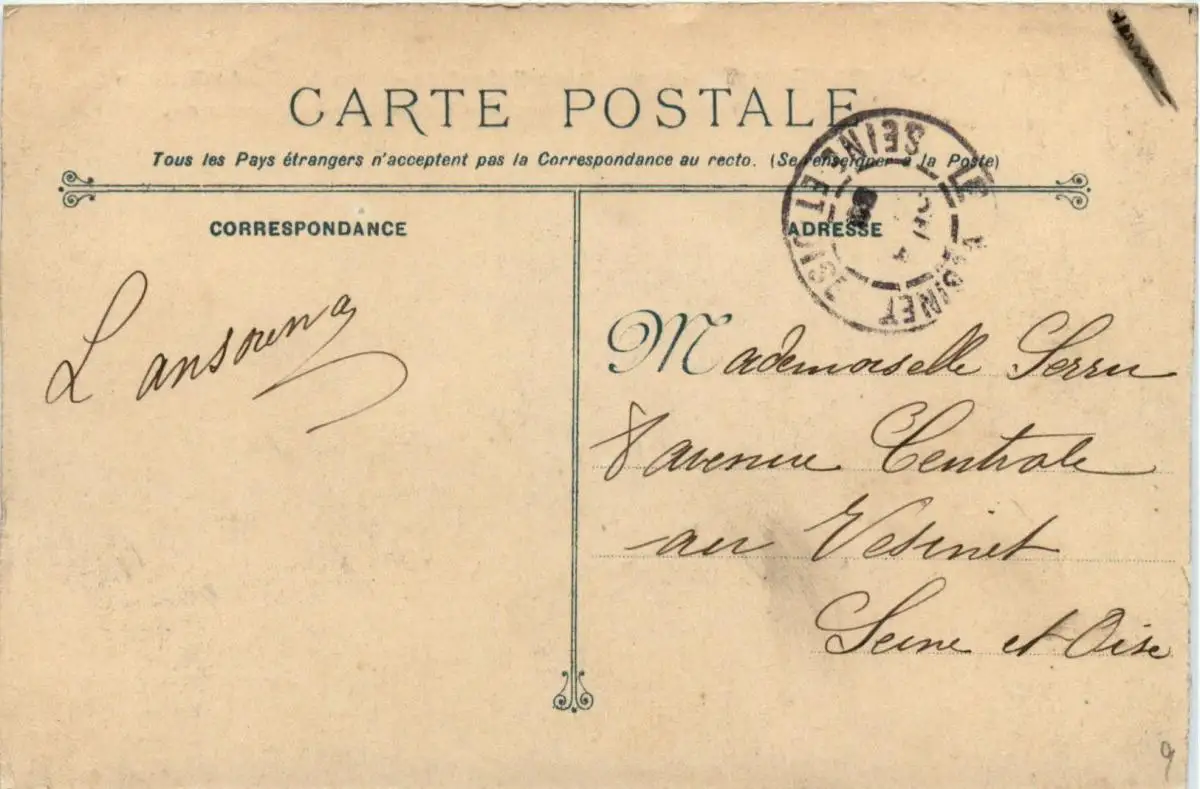 CARTE POSTALE
Tous les Pays étrangers n'acceptent pas la Correspondance au recto. (Se renseigner à la Poste)
CORRESPONDANCE
ADRESSE
LE VESINET
SEINE ET OISE
L ansorena
Mademoiselle Serru
8 avenue Centrale
au Vesinet
Seine et Oise
9